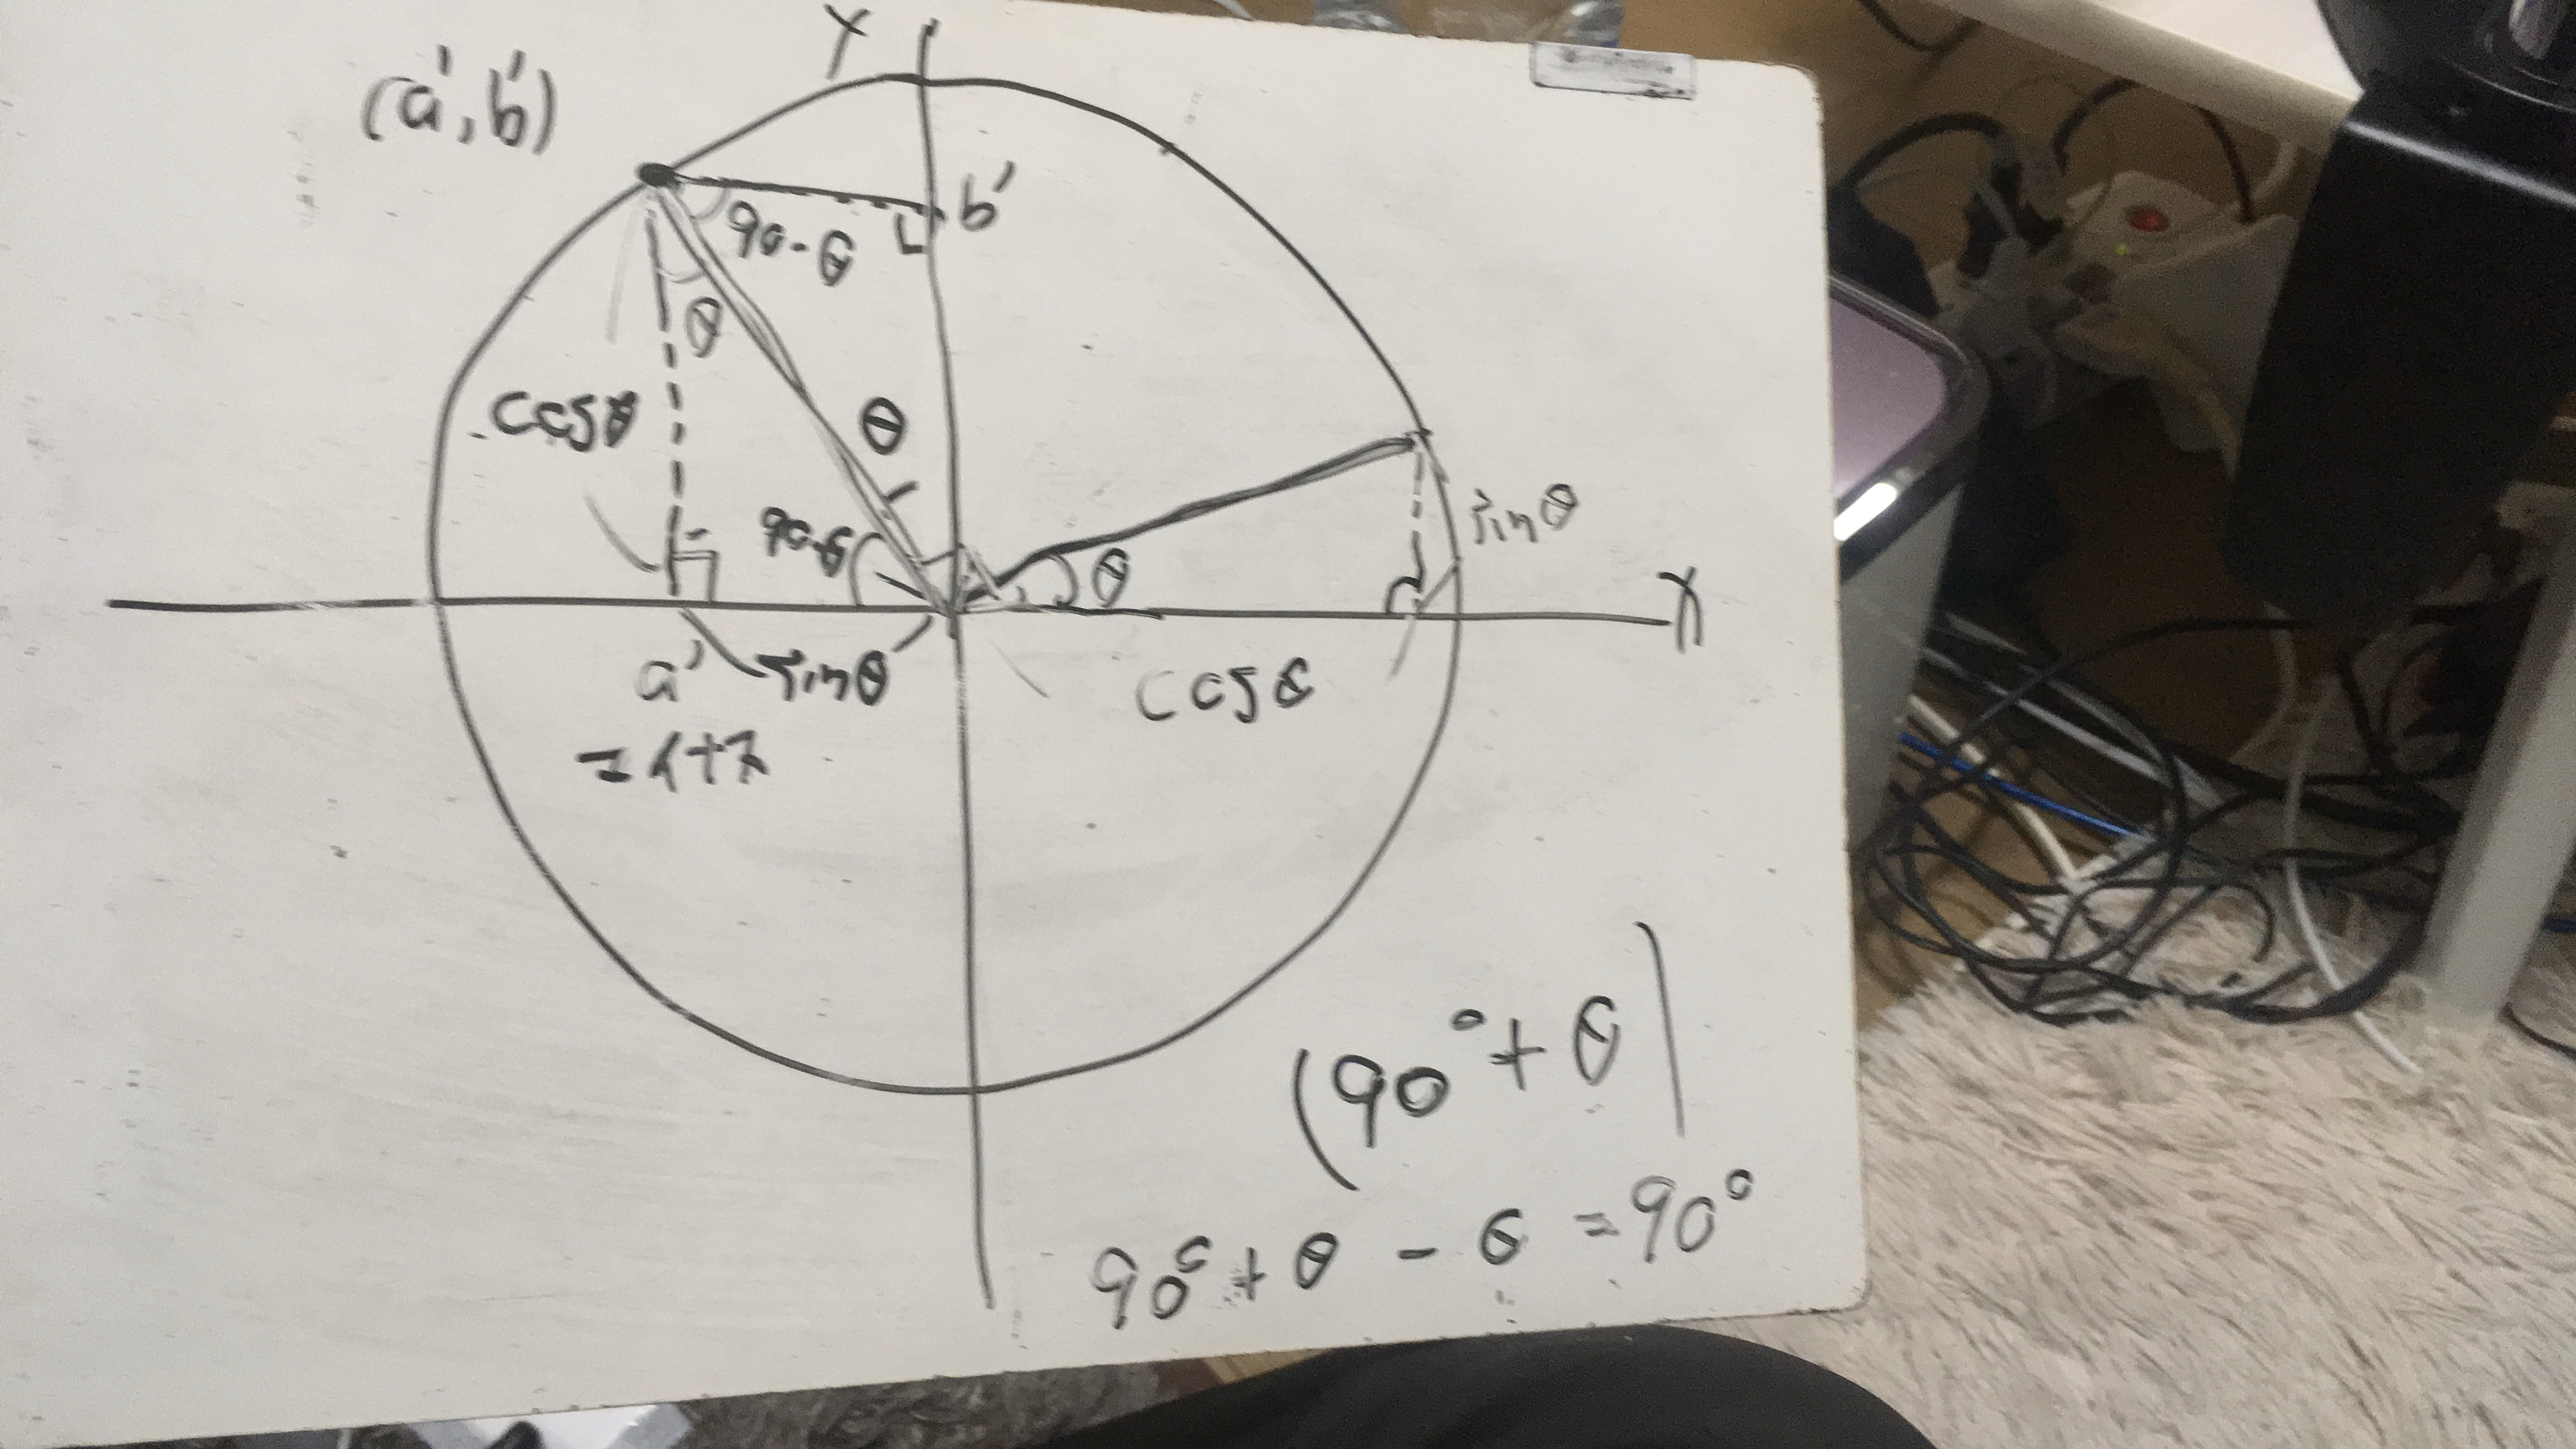 Y
(a', b')
b'
90-θ
θ
cosθ
θ
90-θ
θ
sinθ
X
a'
sinθ
cosθ
(90°+θ)
90°+θ-θ=90°